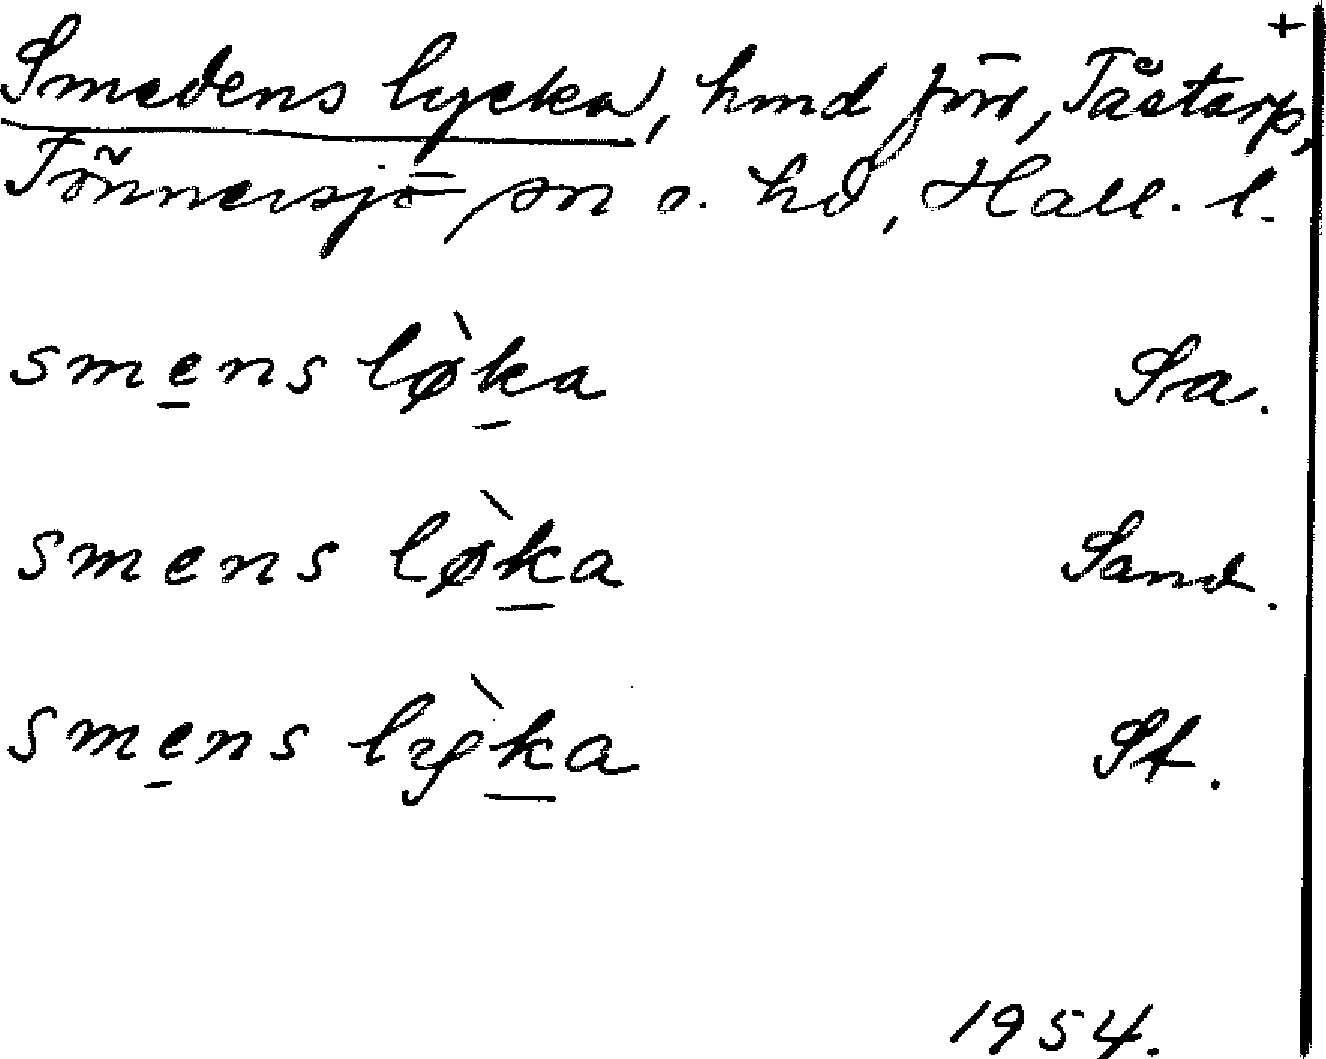 +
Smedens lycka, hmd förr, Tåstarp,
Tönnersjö sn o. hd, Hall. l.
smens lø̀ka Sa.
smens lø̀ka Sand.
smens lỳka St.
1954.